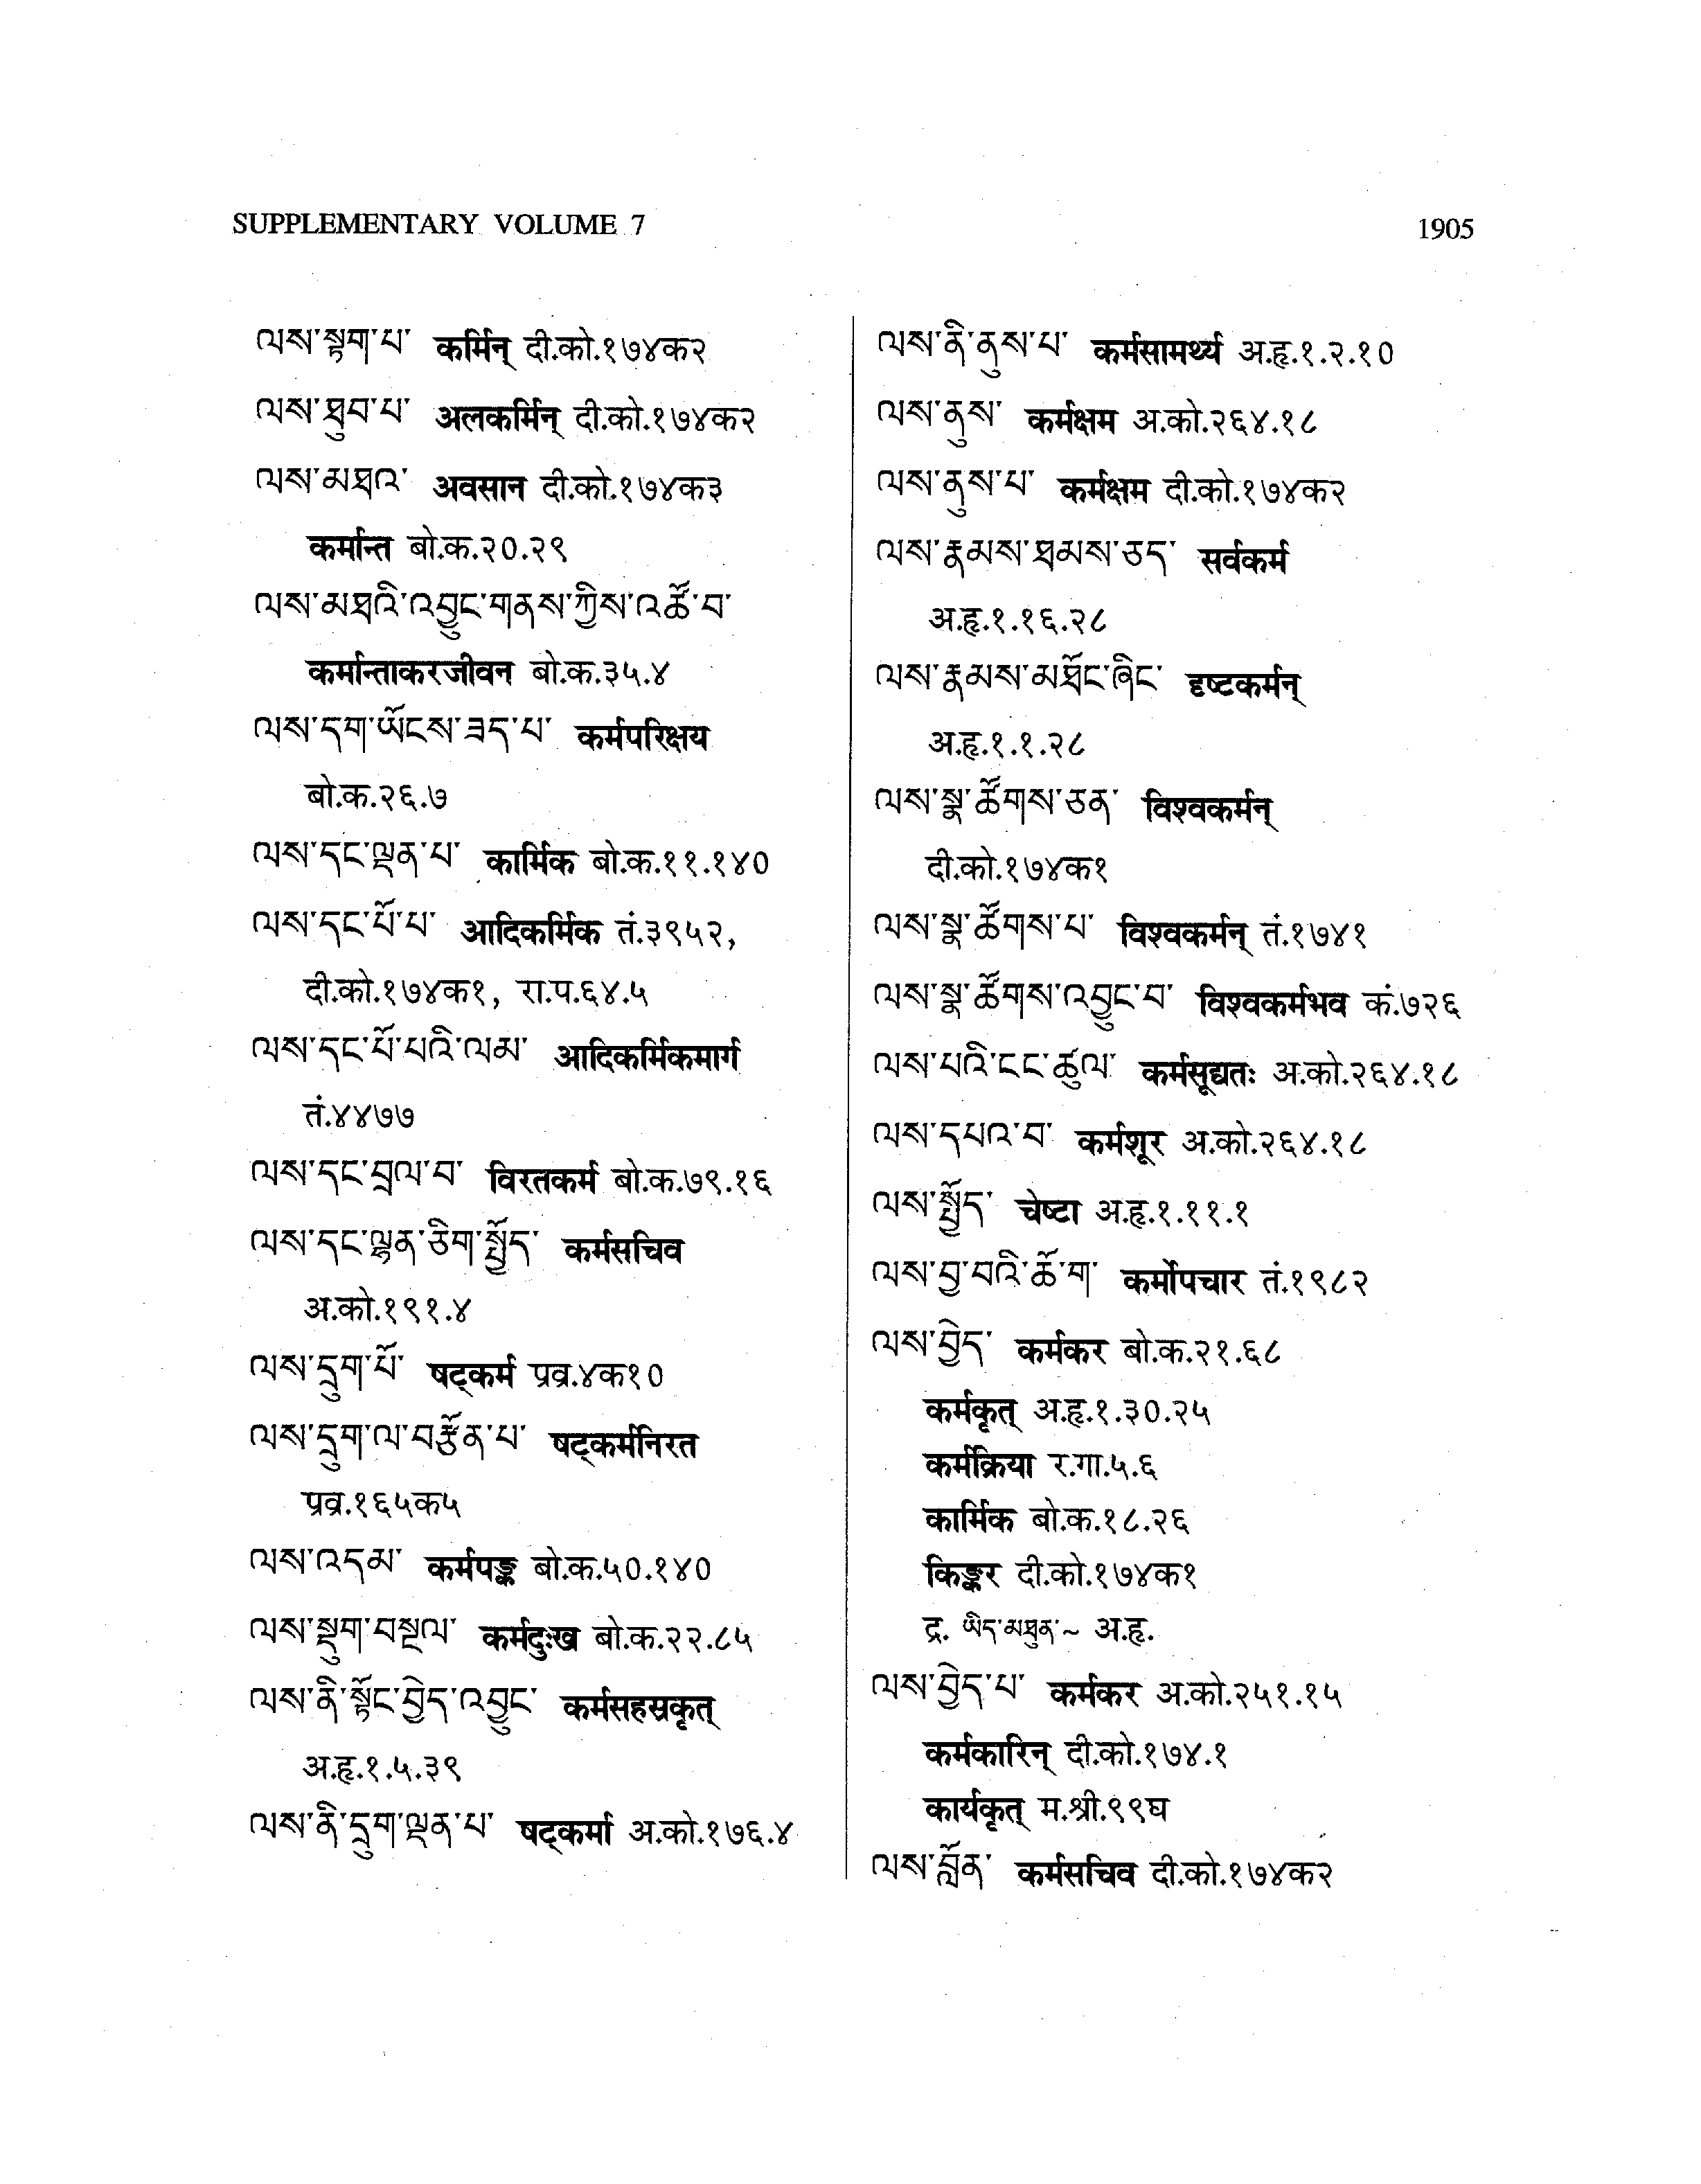 SUPPLEMENTARY VOLUME 7
1905
ལས་སྟག་པ་ कर्मिन् दी.को.१७४क२
ལས་ཐུབ་པ་ अलकर्मिन् दी.को.१७४क२
ལས་མཐའ་ अवसान दी.को.१७४क३
कर्मान्त बो.क.२०.२९
ལས་མཐའི་འབྱུང་གནས་ཀྱིས་འཚོ་བ་
कर्मान्ताकरजीवन बो.क.३५.४
ལས་དག་ཡོངས་ཟད་པ་ कर्मपरिक्षय
बो.क.२६.७
ལས་དང་ལྡན་པ་ कार्मिक बो.क.११.१४०
ལས་དང་པོ་པ་ आदिकर्मिक तं.३९५२,
दी.को.१७४क१, रा.प.६४.५
ལས་དང་པོ་པའི་ལམ་ आदिकर्मिकमार्ग
तं.४४७७
ལས་དང་བྲལ་བ་ विरतकर्म बो.क.७९.१६
ལས་དང་ལྷན་ཅིག་སྤྱོད་ कर्मसचिव
अ.को.१९१.४
ལས་དྲུག་པོ་ षट्कर्म प्रव्र.४क१०
ལས་དྲུག་ལ་བརྩོན་པ་ षट्कर्मनिरत
प्रव्र.१६५क५
ལས་འདམ་ कर्मपङ्क बो.क.५०.१४०
ལས་སྡུག་བསྔལ་ कर्मदुःख बो.क.२२.८५
ལས་ནི་སྟོང་བྱེད་འབྱུང་ कर्मसहस्रकृत्
अ.हृ.१.५.३९
ལས་ནི་དྲུག་ལྡན་པ་ षट्कर्मा अ.को.१७६.४
ལས་ནི་ནུས་པ་ कर्मसामर्थ्य अ.हृ.१.२.१०
ལས་ནུས་ कर्मक्षम अ.को.२६४.१८
ལས་ནུས་པ་ कर्मक्षम दी.को.१७४क२
ལས་རྣམས་ཐམས་ཅད་ सर्वकर्म
अ.हृ.१.१६.२८
ལས་རྣམས་མཐོང་ཞིང་ दृष्टकर्मन्
अ.हृ.१.१.२८
ལས་སྣ་ཚོགས་ཅན་ विश्वकर्मन्
दी.को.१७४क१
ལས་སྣ་ཚོགས་པ་ विश्वकर्मन् तं.१७४१
ལས་སྣ་ཚོགས་འབྱུང་བ་ विश्वकर्मभव कं.७२६
ལས་པའི་ངང་ཚུལ་ कर्मसूद्यतः अ.को.२६४.१८
ལས་དཔའ་བ་ कर्मशूर अ.को.२६४.१८
ལས་སྤྱོད་ चेष्टा अ.हृ.१.११.१
ལས་བྱ་བའི་ཆོ་ག་ कर्मोपचार तं.१९८२
ལས་བྱེད་ कर्मकर बो.क.२१.६८
कर्मकृत् अ.हृ.१.३०.२५
कर्मक्रिया र.गा.५.६
कार्मिक बो.क.१८.२६
किङ्कर दी.को.१७४क१
द्र. ཡིད་མཐུན་~ अ.हृ.
ལས་བྱེད་པ་ कर्मकर अ.को.२५१.१५
कर्मकारिन् दी.को.१७४.१
कार्यकृत् म.श्री.९९घ
ལས་བློན་ कर्मसचिव दी.को.१७४क२